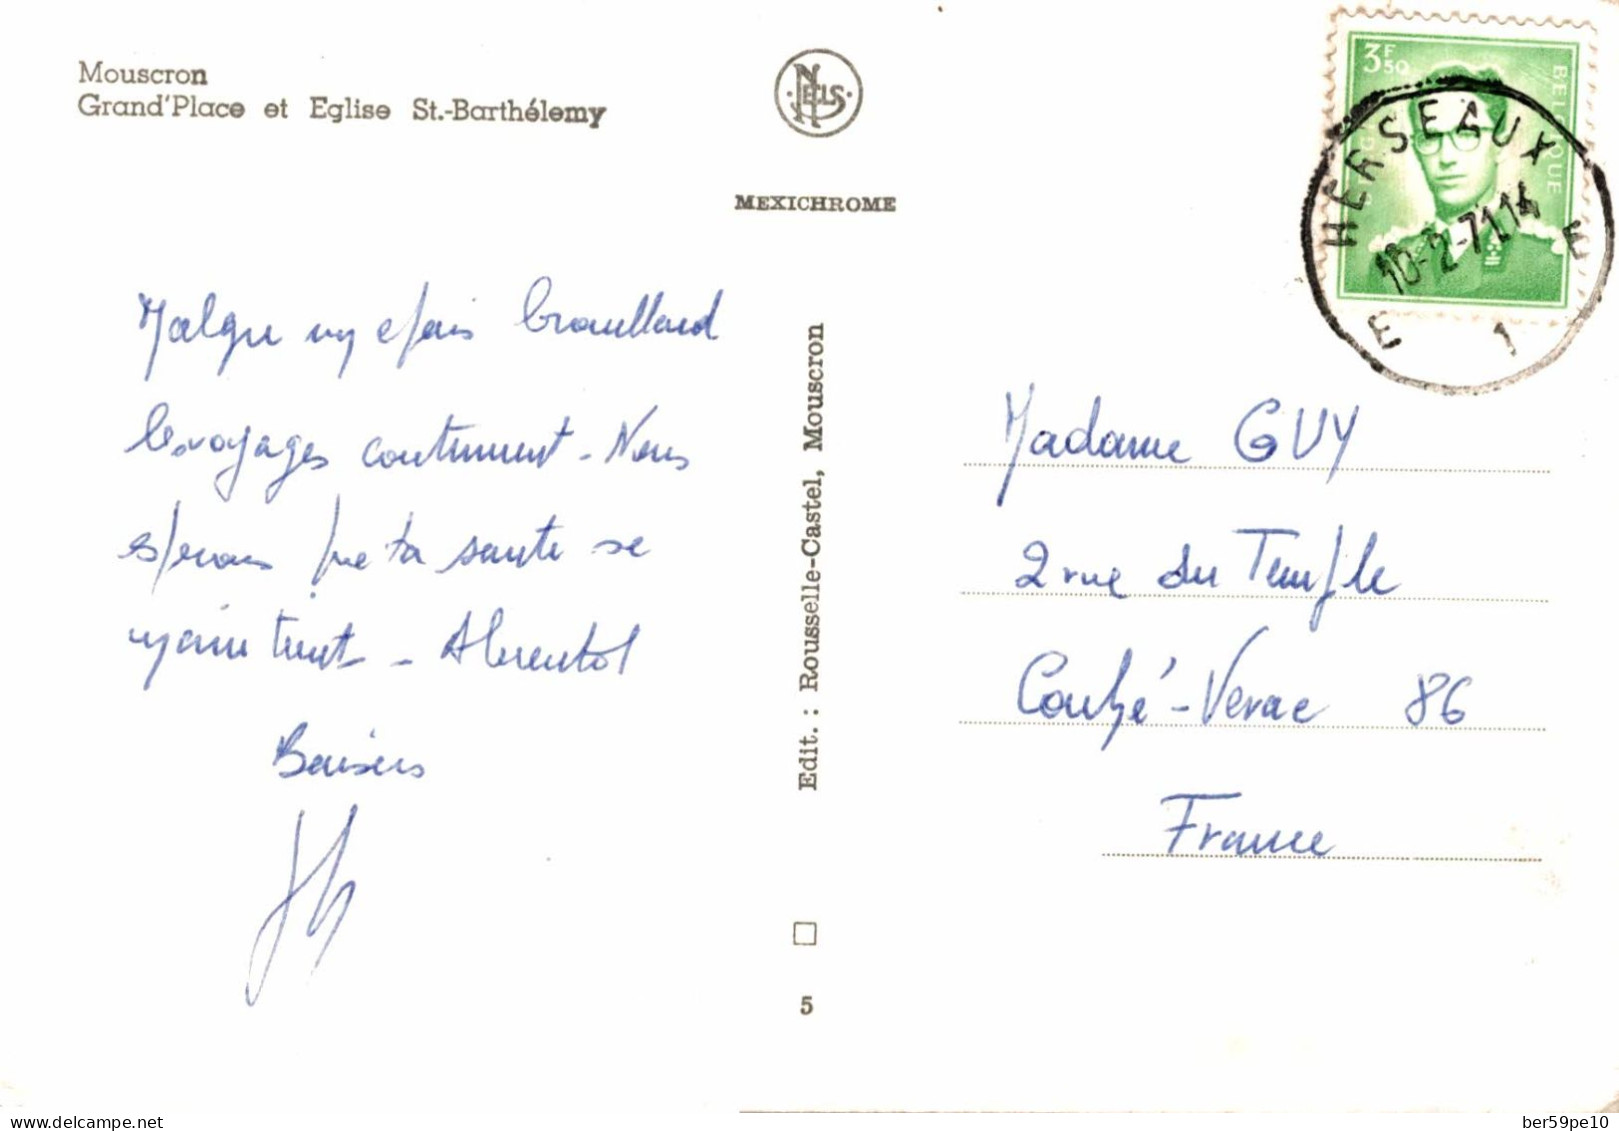 Mouscron
Grand'Place et Eglise St.-Barthélemy
NELS
MEXICHROME
3F50
BELGIQUE
HERSEAUX
10-2-71 14
E 1 E
Malgre un epais brouillard
les voyages continuent - Nous
esperons que ta sante se
maintient - A bientot
Baisers
Edit. : Rousselle-Castel, Mouscron
5
Madame GUY
2 rue du Temple
Couhé-Verac 86
France
ber59pe10